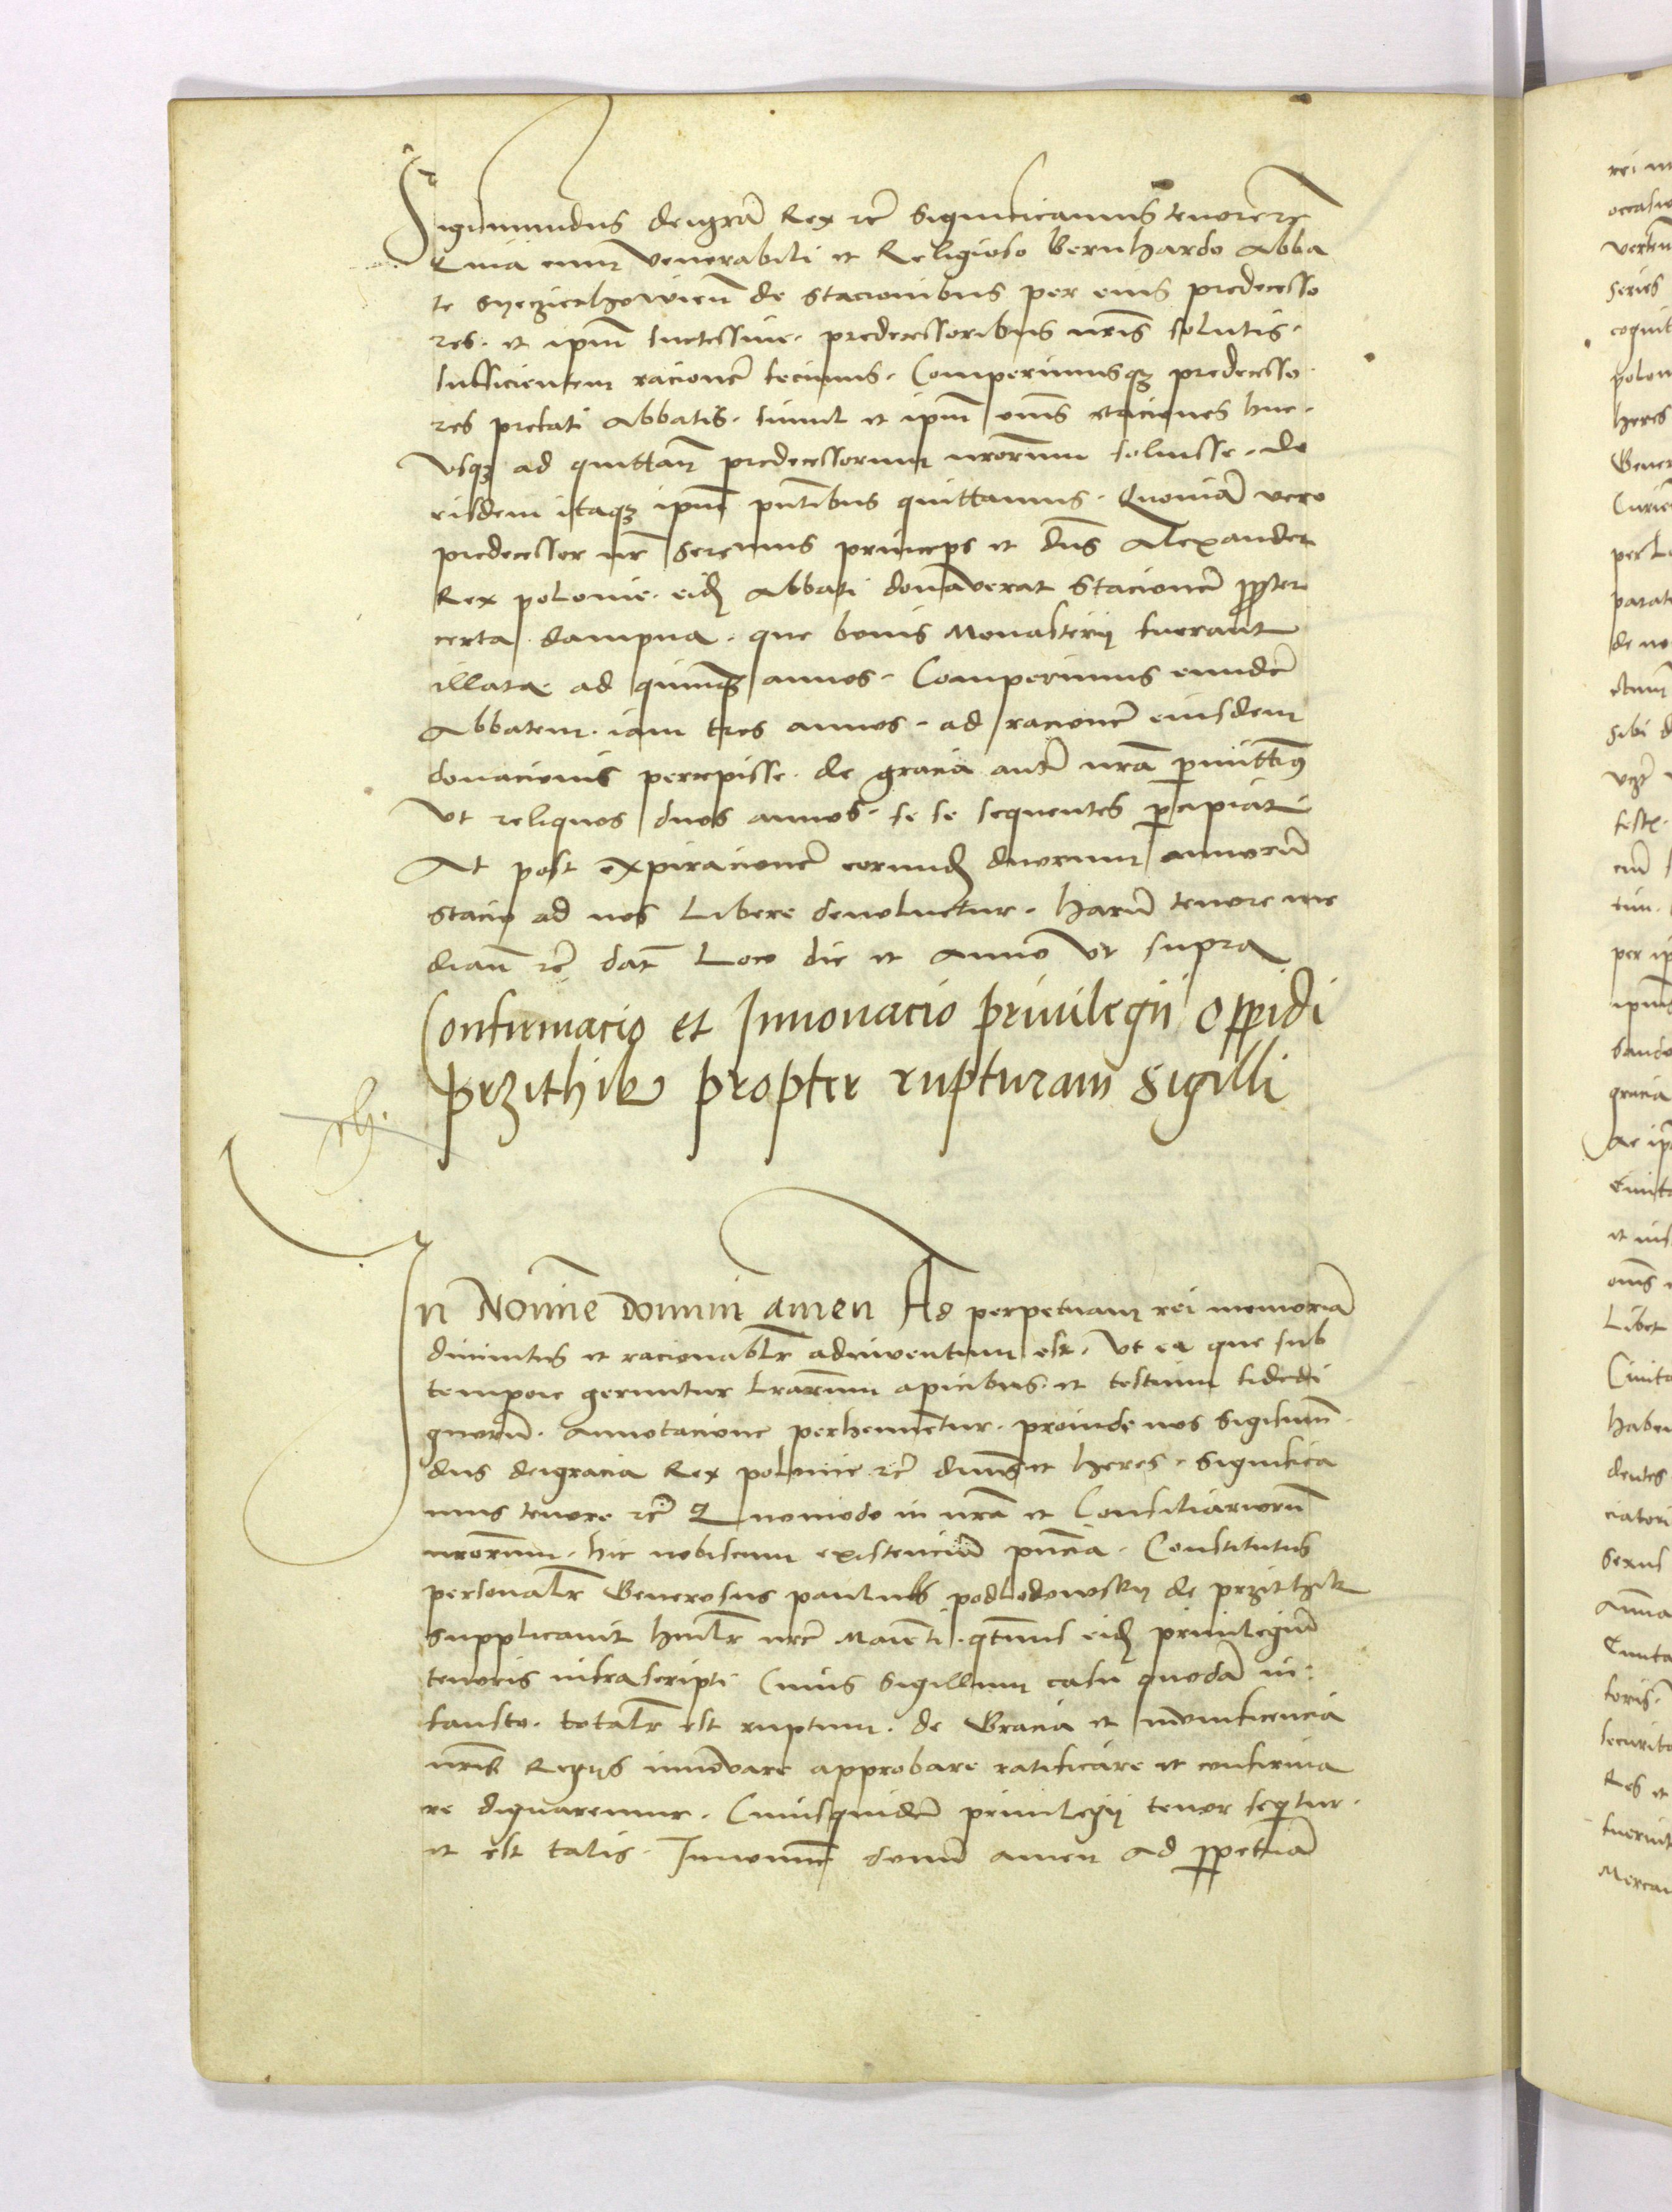 Sigismundus deigrã Rex etc̃ Significamus tenore etc̃
Quia cum Venerabili et Religioso Bernhardo Abba
te Syecziechowieñ de stacionibus per eius predecesso
res. et ipm̃ suctessiue. predecessoribus nr̃is solutis.
sufficientem racionẽ fecimus. Comperimusqȝ predecesso
res prefati Abbatis. simul et ipm̃ om̃s staciones huc-
Usqȝ ad quittañ predecessorum nrõrum soluisse. de
eisdem itaqȝ ipm̃ pñtibus quittamus. Quoniã vero
predecessor nr̃ serenius princeps et dñs Alexander
Rex polonie. eidȝ Abbati donaverat Stacionẽ ꝓpter
certa dampna. que bonis Monasterij fuerant
illata ad quinqȝ annos. Comperimus eundẽ
Abbatem. iam tres annos. ad racionẽ eiusdem
donacionis percepisse. de gracia autẽ nrã permittimꝰ
Ut reliquos duos annos. se se sequentes ꝑcipiat
At post expiracionẽ eorundȝ duorum annorũ
stacio ad nos Libere devoluetur. harũ tenore me
diañ etc̃ dat̃ Loco die et Anno Ut supra
Confirmacio et Innovacio privilegii oppidi
przithik propter rupturam Sigilli
In Nomine Domini amen Ad perpetuam rei memoriã
divinitus et racionabl̃r adinventum est. Ut ea que sub
tempore geruntur lrãrum apicibus. et testium fidedi
gnorũ. annotacione perhennẽtur. proinde nos Sigismũ
dus deigracia Rex polonie etc̃ duns et heres. Significa
mus tenore etc̃ Quomodo in nrã et Consiliariorũ
nrõrum. hic nobiscum existenciũ pñcia. Constitutus
personal̃r Generosus paulus podlodowsky de przithik
supplicavit huml̃r nrẽ Maiẽti. qt̃nus eidȝ privilegiũ
tenoris infrascripti Cuius Sigillum casu quodã in-
fausto. total̃r est ruptum. de Gracia et munificencia
nr̃is Regijs innovare approbare ratificare et confirma
re dignaremur. Cuiusquidẽ privilegij tenor seqitur.
et est talis. Innomine domĩ amen Ad ꝑpetuã